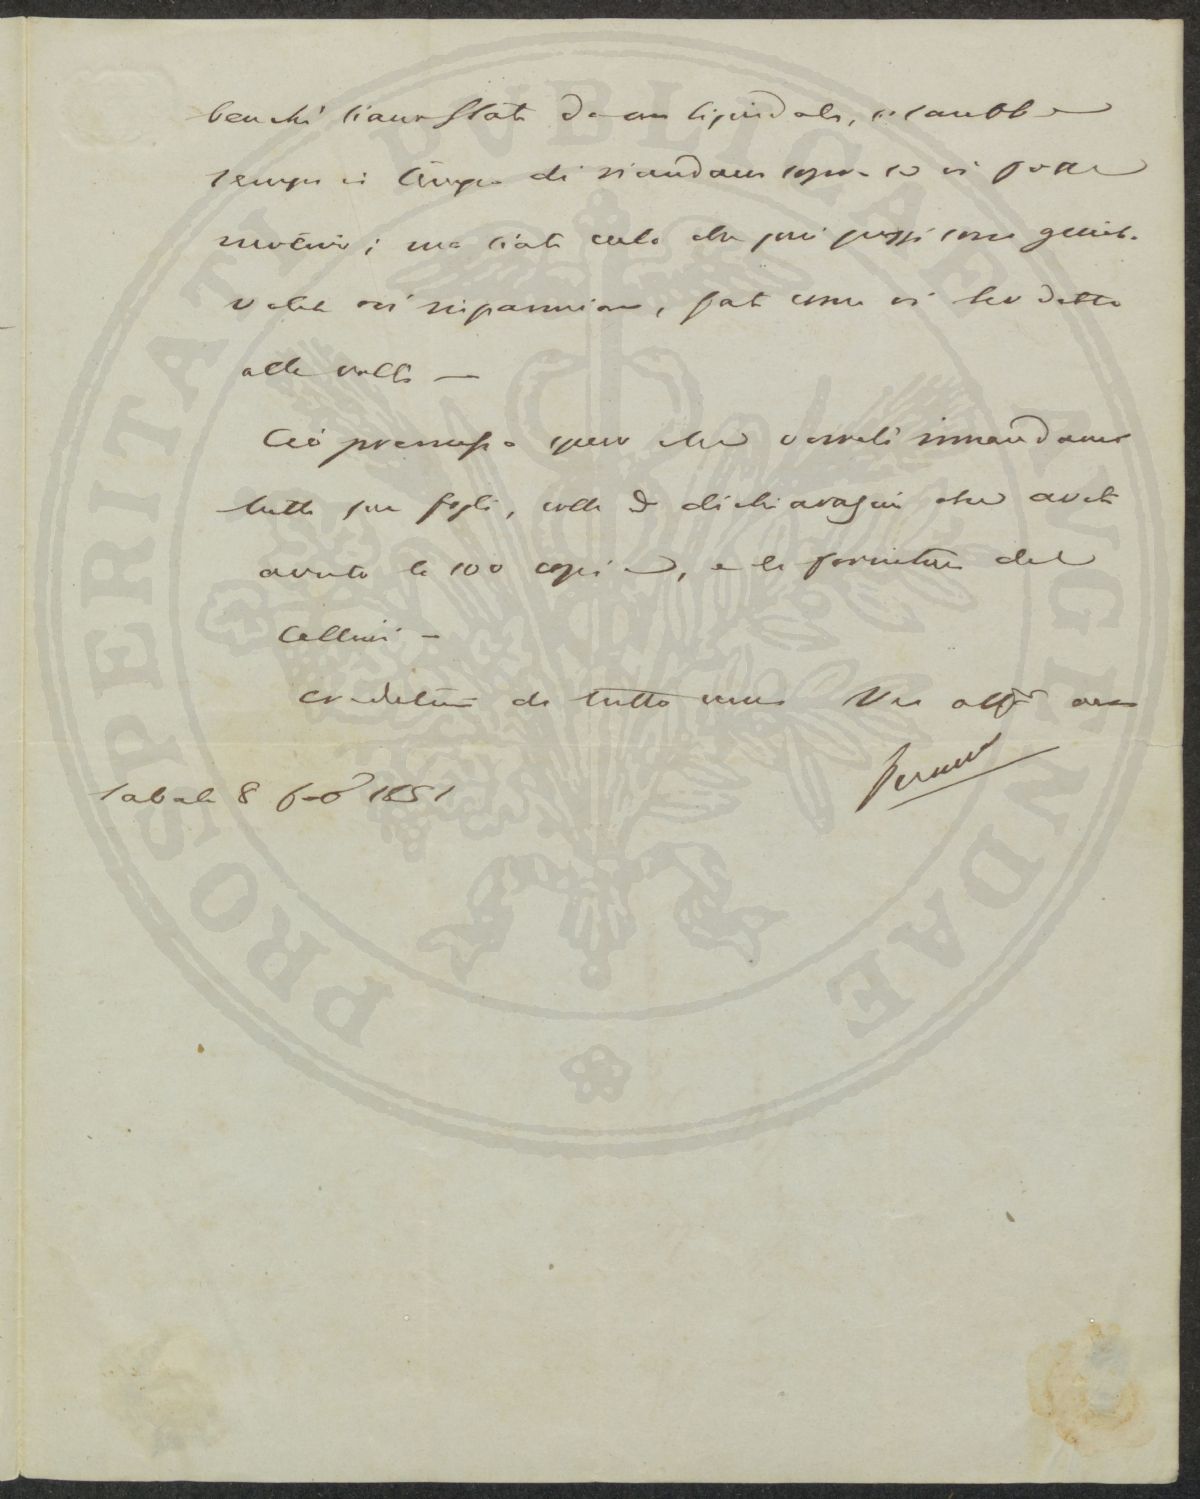 benchè siano state da voi liquidate, ci sarebbe
sempre in tempo di riandarci sopra se vi fosse
motivo; ma siate certo che poi prezzi sono
vi risparmiare, fate come vi ho detto
alle volte —
Ciò premesso spero che vorrete rimandarmi
tutti que fogli, colla dichiarazione che avete
avuto le 100 copie, e la fornitura del
Cellini —
Credetemi di tutto cuore Vro affmo amico
Sabato 8 feb° 1851
PROSPERITATI PVBLICAE AVGENDAE